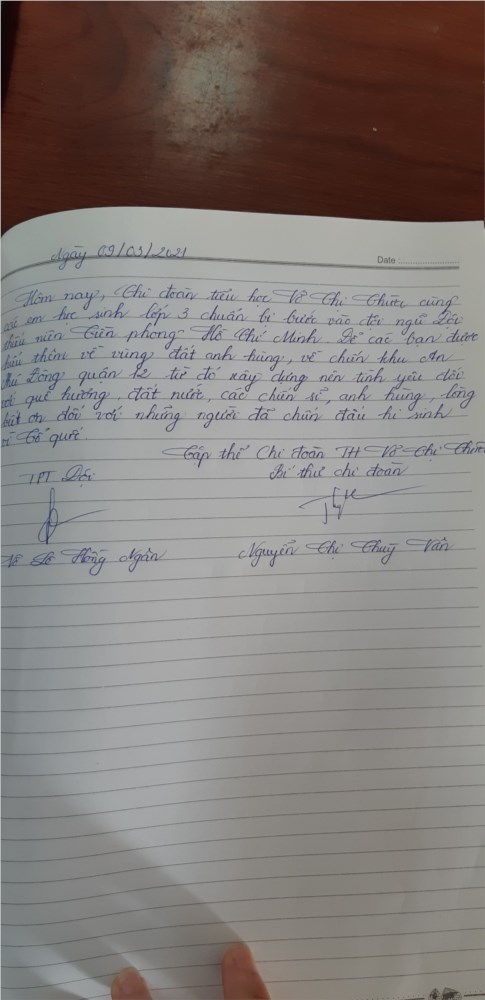 Ngày 09/03/2021
Date :
Hôm nay, Chi đoàn tiểu học Võ Thị Thừa cùng
các em học sinh lớp 3 chuẩn bị bước vào đội ngũ Đội
thiếu niên Tiền phong Hồ Chí Minh. Để các bạn được
hiểu thêm về vùng đất anh hùng, về chiến khu An
Phú Đông quận 12 từ đó xây dựng nên tình yêu đối
với quê hương, đất nước, các chiến sĩ, anh hùng, lòng
biết ơn đối với những người đã chiến đấu hi sinh
vì Tổ quốc.
Tập thể Chi đoàn TH Võ Thị Thừa
TPT Đội
Bí thư chi đoàn
Hồng Ngân
Nguyễn Thị Thuỳ Vân